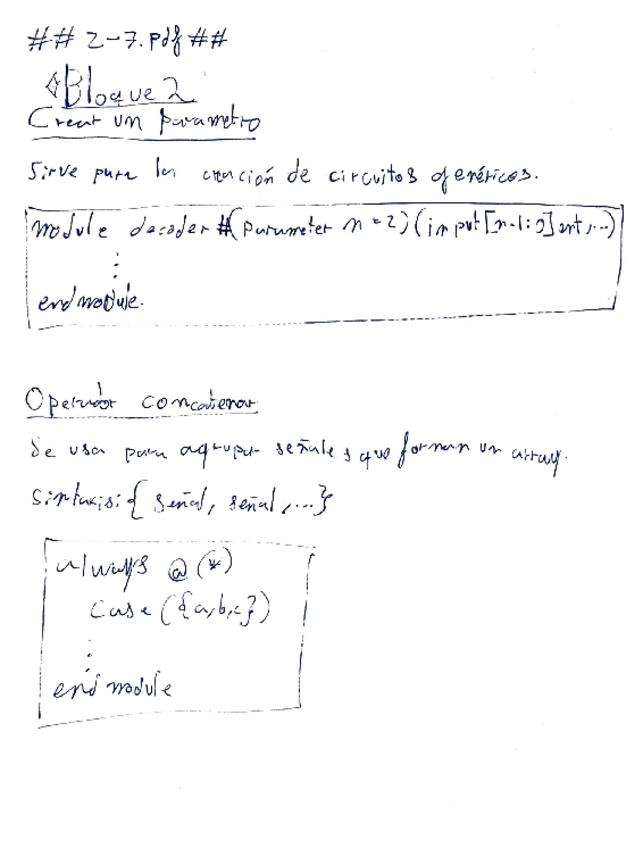 ## 2-7.pdf ##
Bloque 2
Crear un parametro
Sirve para la creación de circuitos genéricos.
module decoder #(parameter n = 2)(input[n-1:0]ent,...)
⋮
endmodule.
Operador concatenar
Se usa para agrupar señales que forman un array.
Sintaxis: { señal, señal,...}
always @(*)
case({a,b,c})
⋮
endmodule